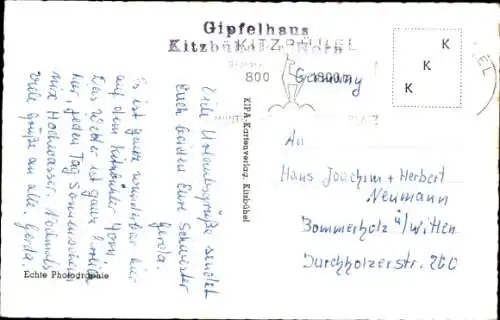 Gipfelhaus
Kitzbüheler Horn
KITZBÜHEL
800
1800 m
Germany
K
K
K
Viele Urlaubsgrüße sendet
Euch beiden Eure Schwester
Gerda.
Es ist ganz wunderbar hier
auf dem Kitzbühler Horn.
Das Wetter ist ganz herrlich
hier, jeden Tag Sonnenschein
nix Hochwasser. Nochmals
viele Grüße an alle. Gerda.
KIPA-Kartenverlag, Kitzbühel
An
Hans Joachim + Herbert
Neumann
Bommerholz ü/Witten
Durchholzerstr. 200
Echte Photographie